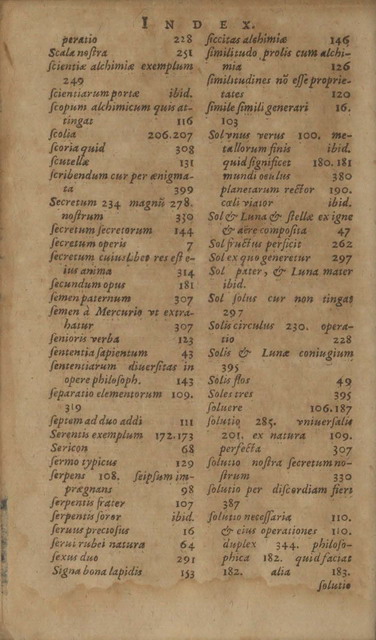 INDEX.
peratio 228
Scala nostra 251
scientiæ alchimiæ exemplum
249
scientiarum portæ ibid.
scopum alchimicum quis at-
tingat 116
scolia 206.207
scoria quid 308
scutellæ 131
scribendum cur per ænigma-
ta 399
Secretum 234 magnũ 278.
nostrum 330
Secretum secretorum 144
secretum operis 7
secretum cuiuslibet res est e-
ius anima 314
secundum opus 181
semen paternum 307
semen à Mercurio vt extra-
hatur 307
senioris verba 123
sententia sapientum 43
sententiarum diuersitas in
opere philosoph. 143
separatio elementorum 109.
319
septem ad duo addi 111
Serentis exemplum 172.173
Sericon 68
sermo typicus 129
serpens 108. seipsum im-
prægnans 98
serpentis frater 107
serpentis soror ibid.
seruus preciosus 16
serui rubei natura 64
sexus duo 291
Signa bona lapidis 153
siccitas alchimiæ 146
similitudo prolis cum alchi-
mia 126
similitudines nõ esse proprie-
tates 120
simile simili generari 16.
103
Sol vnus verus 100. me-
tallorum finis ibid.
quid significet 180.181
mundi oculus 380
planetarum rector 190.
cæli viator ibid.
Sol & Luna & stellæ ex igne
& aere composita 47
Sol fructus perficit 262
Sol ex quo generetur 297
Sol pater, & Luna mater
ibid.
Sol solus cur non tingat
297
Solis circulus 230. opera-
tio 228
Solis & Lunæ coniugium
395
Solis flos 49
Soles tres 395
soluere 106.187
solutio 285. vniuersalis
201. ex natura 109.
perfecta 307
solutio nostra secretum no-
strum 330
solutio per discordiam fieri
387
solutio necessaria 110.
& eius operationes 110.
duplex 344. philoso-
phica 182. quid faciat
182. alia 183.
solutio